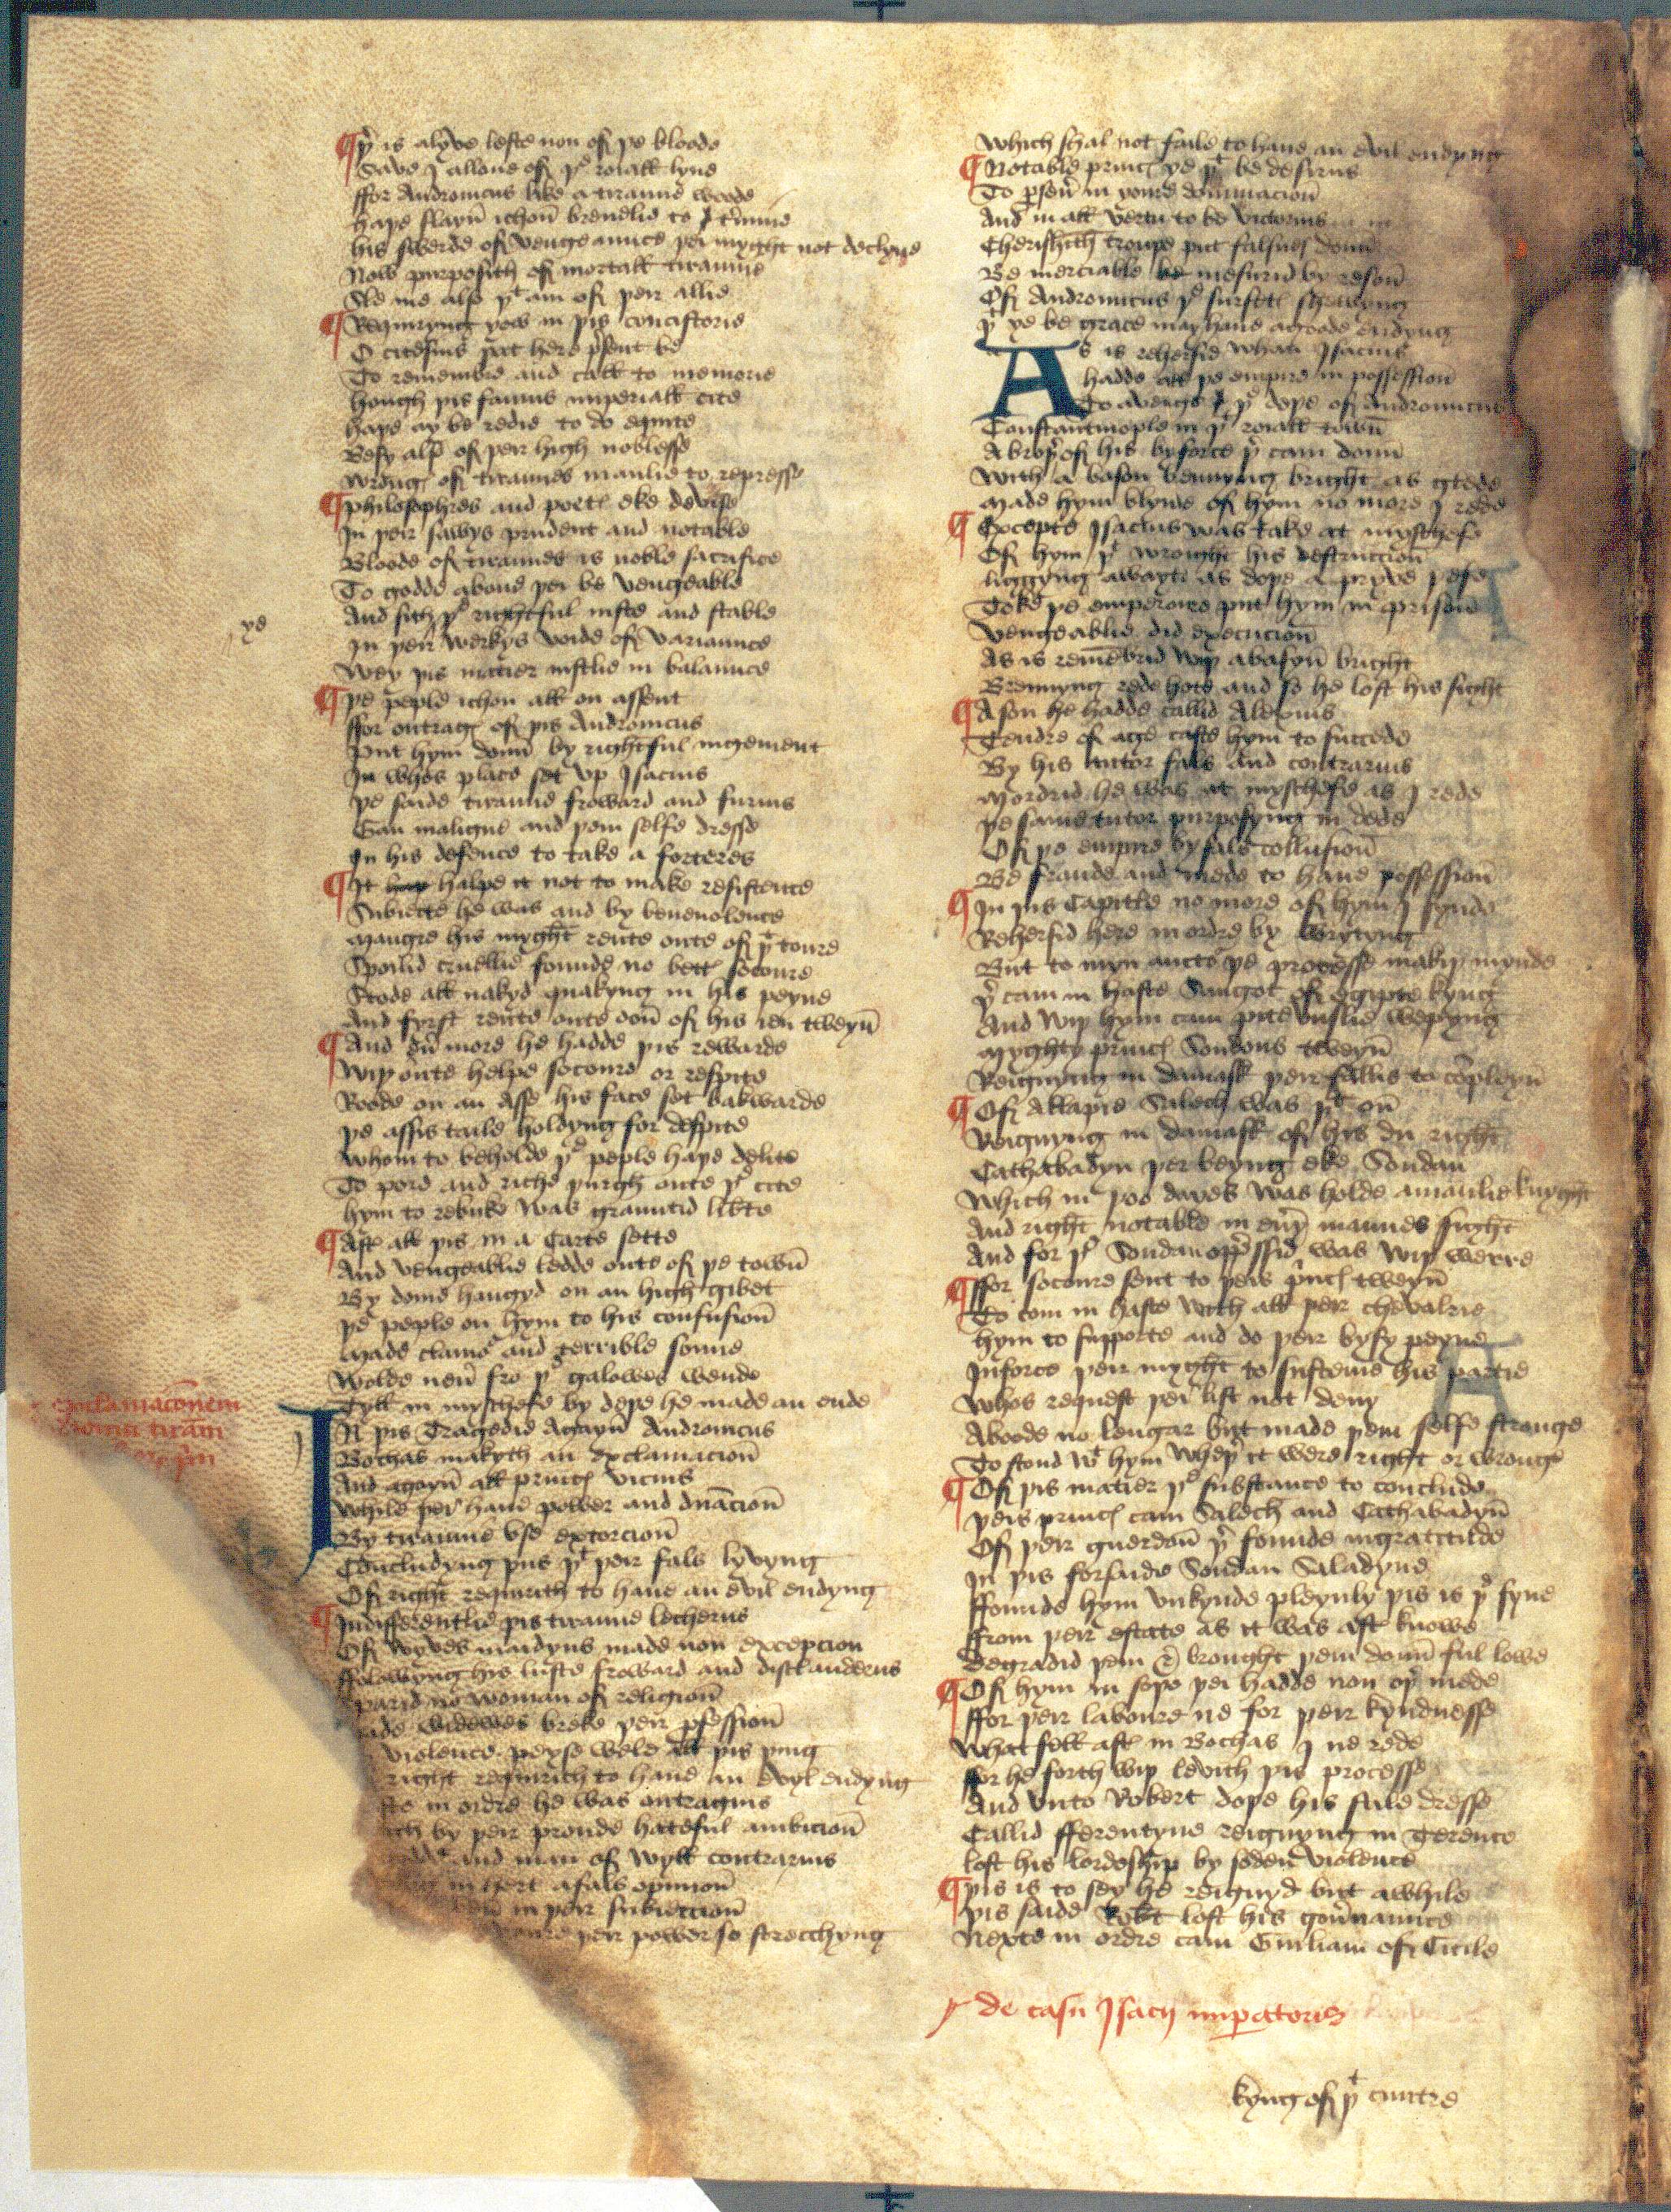 ¶ þͬ is alyve lefte non of þe bloode
Save I allone of þͤ roiall lyne
ffor Andronicus like a tiraunt woode
haþe slayn̄ ichon̄ brendlid to
his swerde of vengeaunce þei myght not declyne
Now purposith of mortall tirannie
Sle me also þͭ am of þeir allie
¶ Requiryng yow in þis concistorie
O citesins þat here p̄sent be
To remembre and call to memorie
hough þis famus imperiall cite
haþe ay be redie to do equite
Besy also of þeir high noblesse
wrong of tirauntes manlie to represse
¶ philosophres and poetꝭ eke devise
In þeir sawys prudent and notable
Bloode of tirauntes is noble sacrifice
To godde above þei be vengeable
And sith þͤ rightful iuste and stable
ye
In þeir werkys voide of variaunce
Wey þis matier iustlie in balaunce
¶ þe peple ichon all on assent
ffor outragꝭ of þis Andronicus
put hym doun̄ by rightful iugement
In whos place set vp Isacius
þe saide tiraunt froward and furius
Gan maligne and þem selfe dresse
In his defence to take a forteres
¶ It halpe it not to make resistence
Subiecte he was and by benevolence
maugre his myght rente oute of þͭ toure
Spoilid cruellie founde no bettꝭ socoure
Stode all nakyd quakyng in his peyne
And fyrst rente oute oon̄ of his ien tweyn̄
¶ And ev̄ more he hadde þis rewarde
wiþ oute helpe socoure or respite
Roode on an Asse his face set bakwarde
þe assis taile holdyng for despite
whom to beholde þͤ peple haþe delite
To pore and riche þurgh oute þͤ cite
hym to rebuke was grauntid lib̄te
¶ Aftꝭ all þis in a Carte sette
And vengeablie ledde oute of þe town̄
By dome hangyd on an high gibet
þe peple on hym to his confusion̄
made clamoͬ and terrible soune
wolde neū fro þͤ galowes wende
Tyll in myschefe by deþe he made an ende
exclamac̄onem
In þis Tragedie Agayn̄ Andronicus
Bochas makyth an exclamacion̄
And agayn̄ all princꝭ vicius
while þei have power and dn̄acion̄
By tirannie vse extorcion̄
Concludyng þus þͭ þeir fals lyvyng
Of right requirith to have an evil endyng
¶ Indifferentlie þis tiraunt lecherus
Of wyves maidyns made non excepcion
ffolowyng his luste froward and disclaunderus
parid no woman of religion̄
ade widewes breke þeir p̄fession̄
violence peyse wele all þis þing
right requirith to have an evyl endyng
in ordre he was outragius
by þeir proude hateful ambicion̄
and man of wyll contrarius
in hert a fals opinion̄
in þeir subieccion̄
þeir power so strecchyng
which shal not faile to have an evil endyng
¶ Notable princꝭ ye þͭ be desirus
To p̄sev̄ in youre dominacion̄
And in all vertu to be victorius
Cherishith trouþe put falsnes doun̄
Be merciable mesurid by reson̄
Of Andronicus þͤ surfete shewyng
þͭ ye be grace may have a goode endyng
As is rehersid what Isacius
hadde all þe empire in possession̄
To avenge þͤ deþe of Andronicus
Constantinople in þͭ roiall town̄
A broþͬ of his by force þͬ cam doun̄
with a bason brennyng bright as glede
made hym blynde of hym no more I rede
¶ Excepte Isacius was take at myschefe
Of hym þͭ wrought his destruccion̄
liggyng awayte as doþe a pryve þefe
Toke þe emperoure put hym in prison
vengeablie did execucion̄
As is remēbrid wiþ a bason̄ bright
Brennyng rede hote and so he lost his sight
¶ A son he hadde callid Alexius
Tendre of age caste hym to succede
By his tutor fals and contrarius
mordrid he was at myschefe as I rede
þe same tutor purposyng in dede
Of þe empire by fals collusion̄
Be fraude and mede to have possession̄
¶ In þis Capitle no more of hym I fynde
Rehersid here in ordre by writyng
But to myn auctoͬ þe processe makiþ mynde
þͬ cam in haste Sangot of egipte kyng
And wiþ hym cam pitevuslie wepyng
myghty princꝭ Soudons tweyn̄
Reignyng in damask þeir fallis to cōpleyn̄
¶ Of Allapie Salech was þͭ on̄
Reignyng in damask of his dū right
Cathabadyn þer beyng eke Soudan
which in þoo dayes was holde a manlie knyght
And right notable in ev̄y mannes sight
And for þͤ Soudan opp̄ssid was wiþ werre
¶ ffor socoure sent to þeis p̄incꝭ tweyn̄
To com in haste with all þeir chevalrie
hym to supporte and do þeir bysy peyne
Inforce þeir myght to susteine his partie
whos request þei list not deny
Aboode no lengar but made þem selfe stronge
To stond wͭ hym wheþͬ it were right or wronge
¶ Of þis matier þͤ substance to conclude
þeis princꝭ cam Salech and Cathabadyn̄
Of þeir guerdon̄ þͬ founde ingratitude
In þis forsaide Soudan Saladyne
ffounde hym vnkynde pleynly þis is þͤ fyne
ffrom þeir estate as it was aftꝭ knowe
Degradid þem & brought þem doun̄ ful lowe
¶ Of hym in soþe þei hadde non oþͬ mede
ffor þeir laboure ne for þeir kyndnesse
what fell aftꝭ in Bochas I ne rede
for he forth wiþ levith þis processe
And vnto Robert doþe his stile dresse
Callid fferentyne reignyng in Terence
lost his lordeship by soden violence
¶ þis is to sey he reignyd but awhile
þis saide Rob̄t lost his gov̄naunce
Nexte in ordre cam Guiliam of Cicile
de casu Isacij imperatoris
kyng of þͭ cuntre